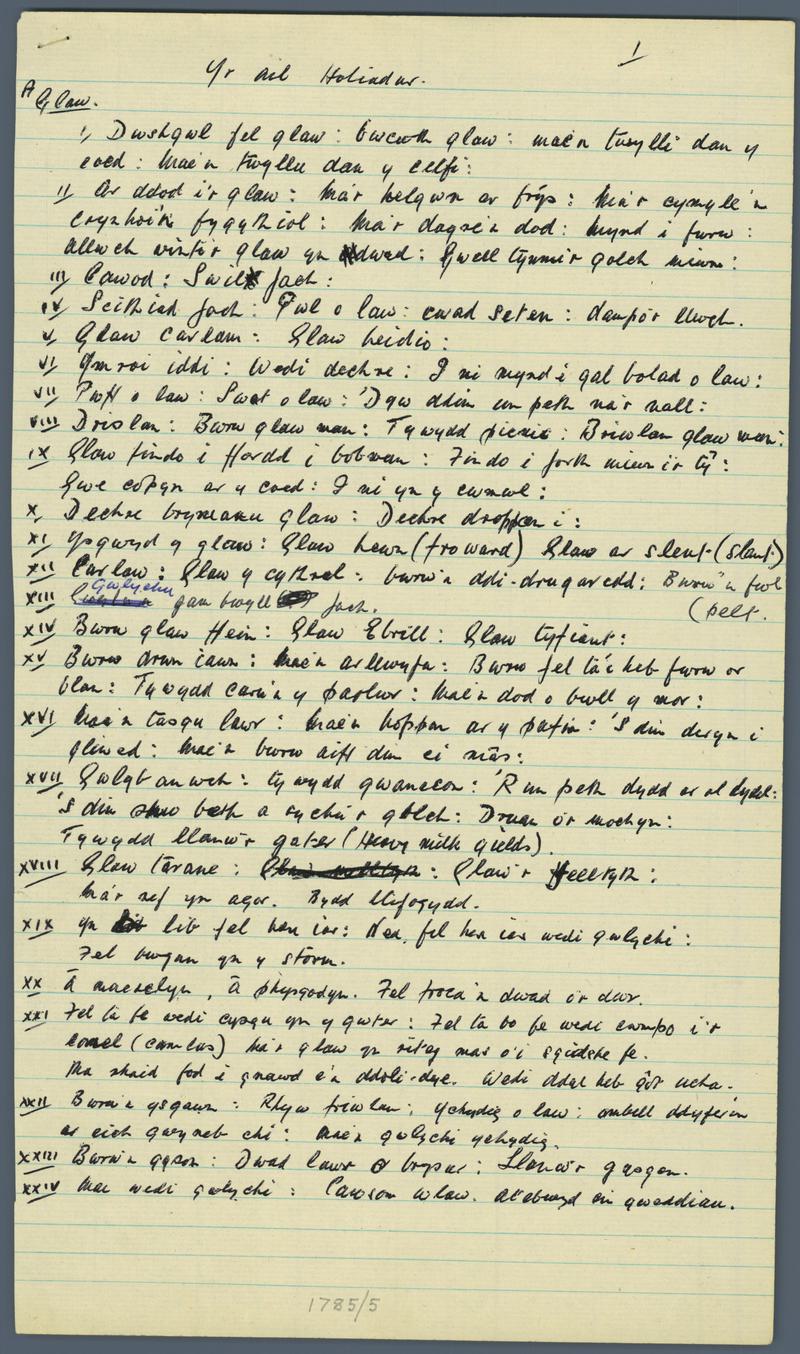 1
Yr ail Holiadur.
A Glaw.
i, Dwshgwl fel glaw: bwcwth glaw: mae'n twylli dan y
coed: Mae'n twyllu dan y celfi:
ii Ar ddod i'r glaw: Ma'r helgwn ar frys: Ma'r cymyle'n
crynhoi'n fygythiol: Ma'r dagre'n dod: Mynd i fwrw:
Allwch wint'r glaw yn dwad: Gwell tynnu'r golch miwn:
iii Cawod: Swil fach:
iv Scithiad fach: Pwl o law: cwad seten: dampo'r llwch.
v Glaw carlam: Glaw heidio:
vi Ymroi iddi: Wedi dechre: I ni mynd i gal bolad o law:
vii Pwff o law: Swat o law: 'Dyw ddim un peth na'r nall:
viii Drislan: Bwrw glaw man: Tywydd picnic: Briwlan glaw man:
ix Glaw findo i ffordd i bobman: Findo i forth miwn i'r tŷ:
Gwe copyn ar y coed: I ni yn y cwmwl:
x, Dechre brymanu glaw: Dechre droppan i:
xi Ysgwyd y glaw: Glaw hewn (froward) Glaw ar slent (slant)
xii Carlaw: Glaw y cythrel: bwrw'n ddi-drugaredd: Bwrw'n fwl
(pelt.
xiii Gwlychu gam bwyll fach.
xiv Bwrw glaw Hein: Glaw Ebrill: Glaw tyfiant:
xv Bwrw drwn iawn: Mae'n arllwyfn: Bwrw fel ta'i heb fwrw or
blan: Tywydd caru'n y parlwr: Mae'n dod o bwll y mor:
xvi Mae'n tasgu lawr: Mae'n hoppan ar y patin: 'S dim deryn i
gliwed: Mae'n bwrw aiff dim ci mas:
xvii Gwlyb anwch: tywydd gwanecon: 'R un peth dydd ar ol dydd:
'S dim shw beth a sychu'r golch: Druan o'r mochyn:
Tywydd llanw'r gater (Heavy milk yields).
xviii Glaw tarane: Glaw'r Felltyth:
Ma'r nef yn agor. Bydd llifogydd.
xix Yn lib fel hen iar: Nea, fel hen iar wedi gwlychi:
Fel bwgan yn y storm.
xx A maeselyn, A physgodyn. Fel froca'n dwad o'r dwr.
xxi Fel ta fe wedi cysgu yn y gwter: Fel ta bo fe wedi cwmpo i'r
canel (camlas) Ma'r glaw yn riteg mas o'i sgidshe fe.
Ma rhaid fod i gnawd e'n ddoli-dye. Wedi ddal heb got ucha.
xxii Bwrw'n ysgawn: Rhyw friwlan: Ychydig o law: ambell ddyferin
ar eich gwyneb chi: Mae'n gwlychi ychydig.
xxiii Bwrw'n gyson: Dwad lawr o brysur: Llanw'r gasgen.
xxiv Mae wedi gwlychi: Cawsom wlaw. Atebwyd ein gweddiau.
1785/5